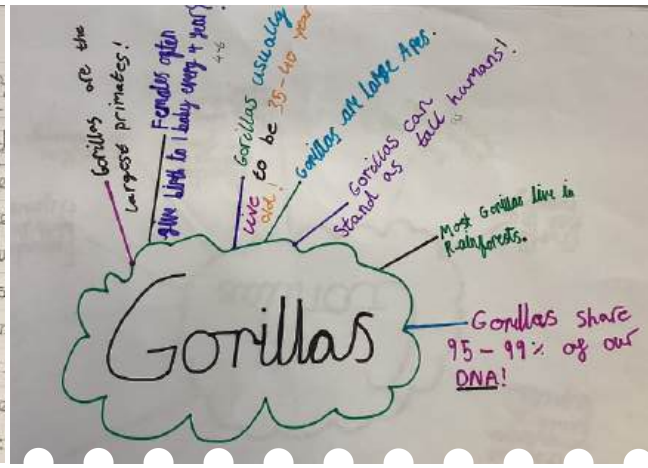 Gorillas are the
largest primates!
Females often
give birth to 1 baby every 4 years
4-6
Gorillas usually
live to be 35-40 year
old!
Gorillas are large Apes.
Gorillas can
Stand as tall humans!
as
Most Gorillas live in
Rainforests.
Gorillas share
95-99% of our
DNA!
Gorillas